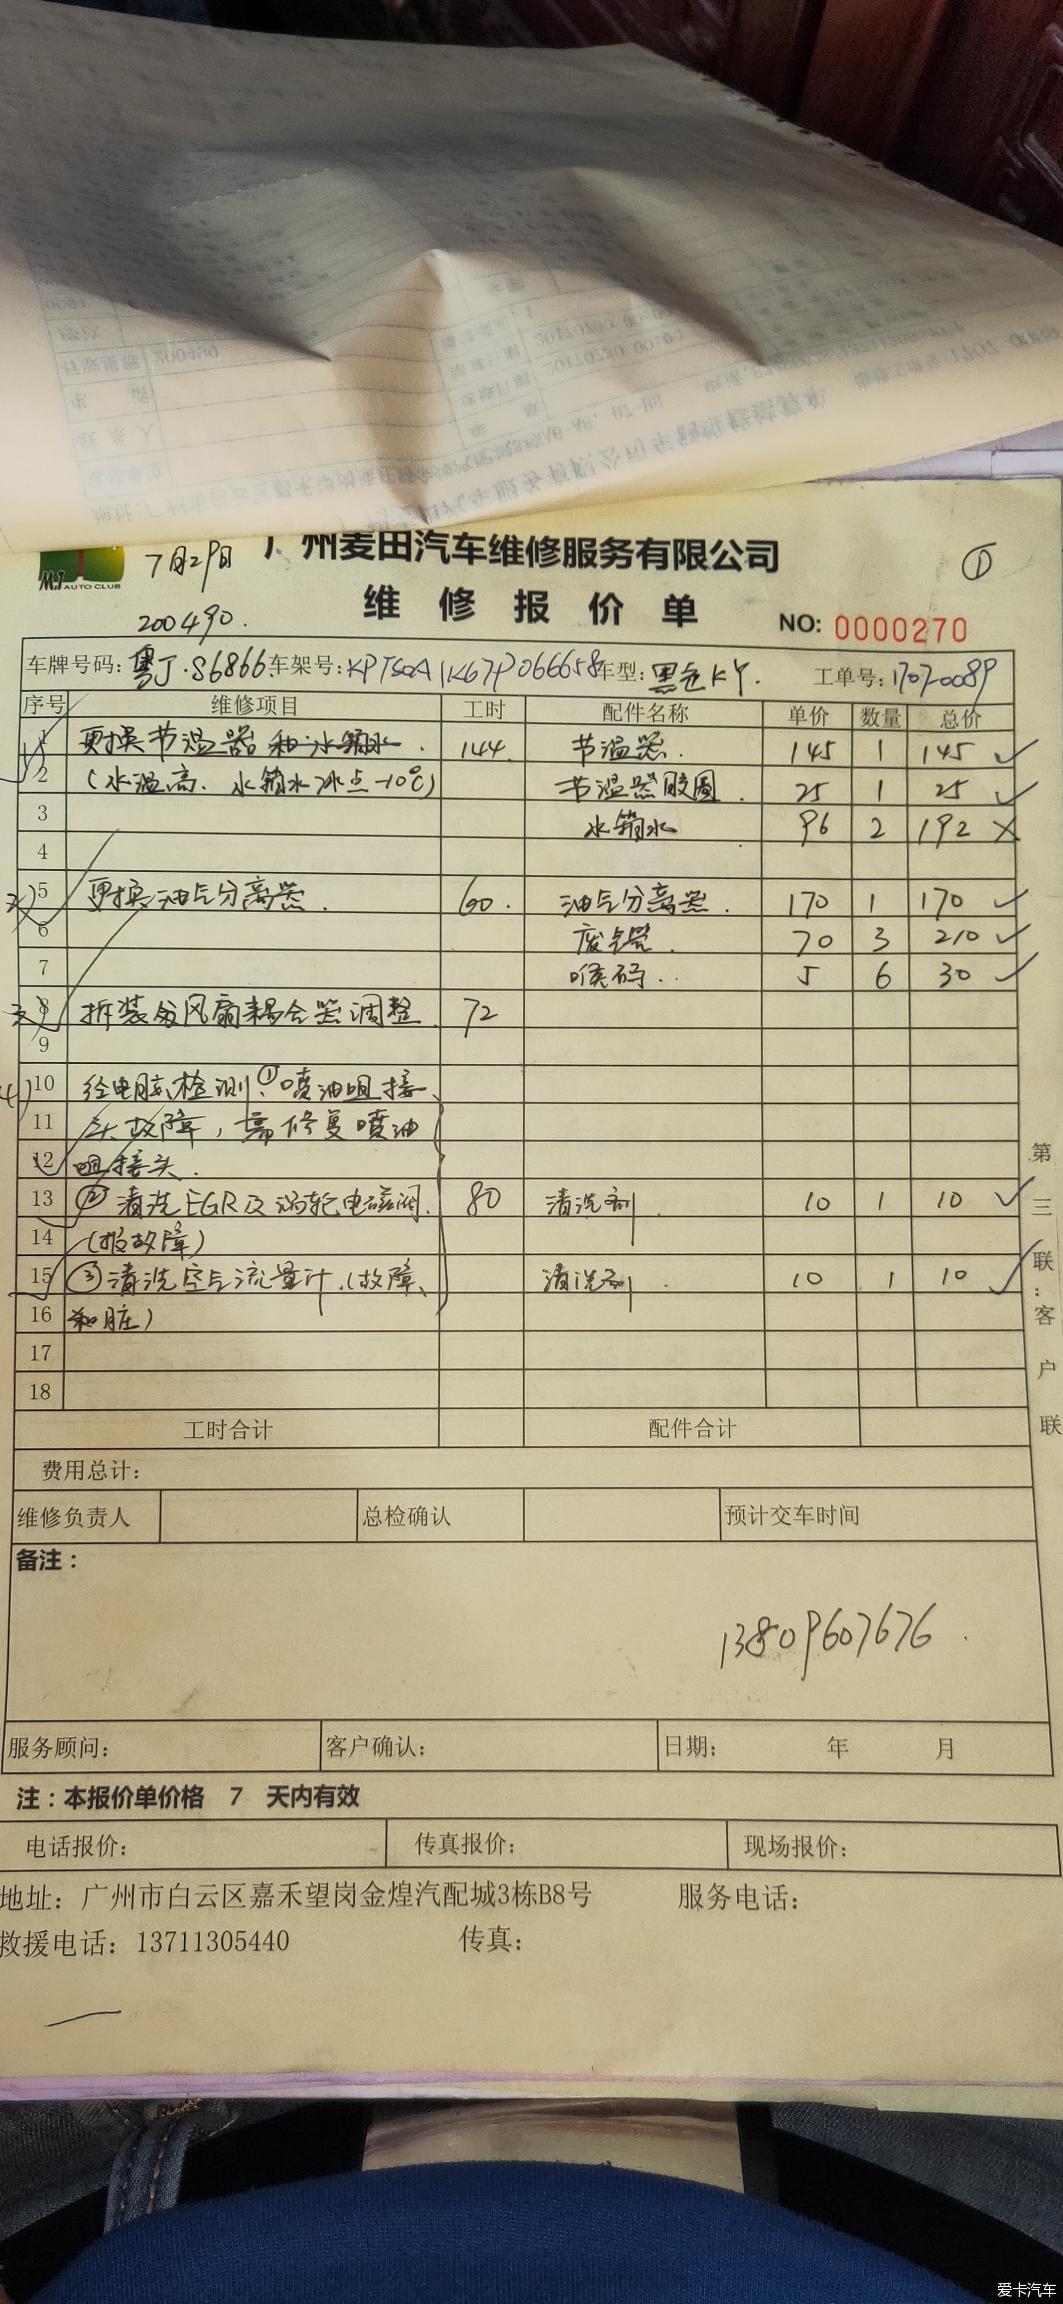 7月29日
广州麦田汽车维修服务有限公司
①
M.T AUTO CLUB
维修报价单
200490.
NO: 0000270
车牌号码: 粤J·S6866. 车架号: KPTS0A1K67P066658 车型: 黑色KY. 工单号: 1707-0089
序号 维修项目 工时 配件名称 单价 数量 总价
1 更换节温器和水箱水. 144. 节温器. 145 1 145 ✓
2 (水温高. 水箱水冰点-10℃) 节温器胶圈. 25 1 25 ✓
3 水箱水 96 2 192 ×
4
2) 5 更换油气分离器. 60. 油气分离器. 170 1 170 ✓
6 废气管. 70 3 210 ✓
7 喉码.. 5 6 30 ✓
3) 8 拆装发风扇耦合器调整. 72
9
4) 10 经电脑检测: ①喷油咀接
11 头故障, 需修复喷油
12 咀接头.
13 ②清洗EGR及涡轮电磁阀. 80 清洗剂. 10 1 10 ✓
14 (报故障)
15 ③清洗空气流量计.(故障、 清洗剂. 10 1 10 ✓
16 和脏)
17
18
第三联:客户联
工时合计 配件合计
费用总计:
维修负责人 总检确认 预计交车时间
备注:
13809607676.
服务顾问: 客户确认: 日期: 年 月
注:本报价单价格 7 天内有效
电话报价: 传真报价: 现场报价:
地址: 广州市白云区嘉禾望岗金煌汽配城3栋B8号 服务电话:
救援电话: 13711305440 传真:
爱卡汽车